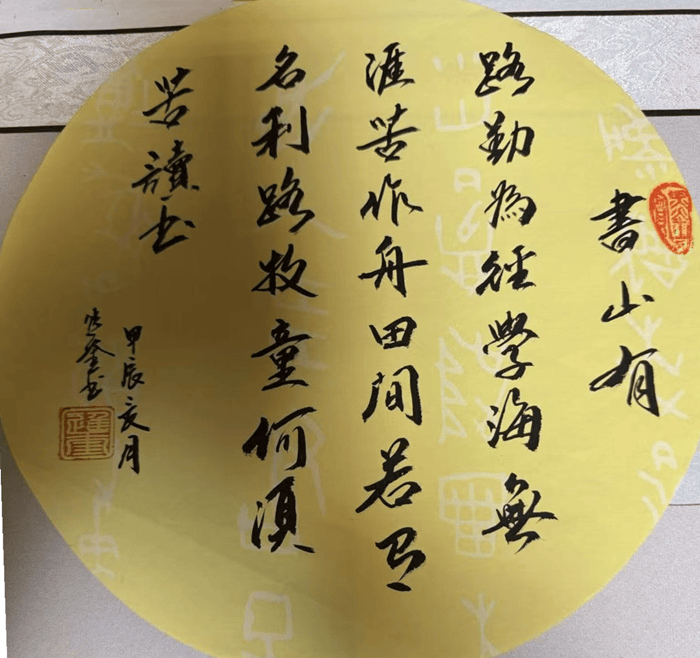 書山有
路勤為徑學海無
涯苦作舟田間若有
名利路牧童何須
苦讀书
甲辰亥月
书